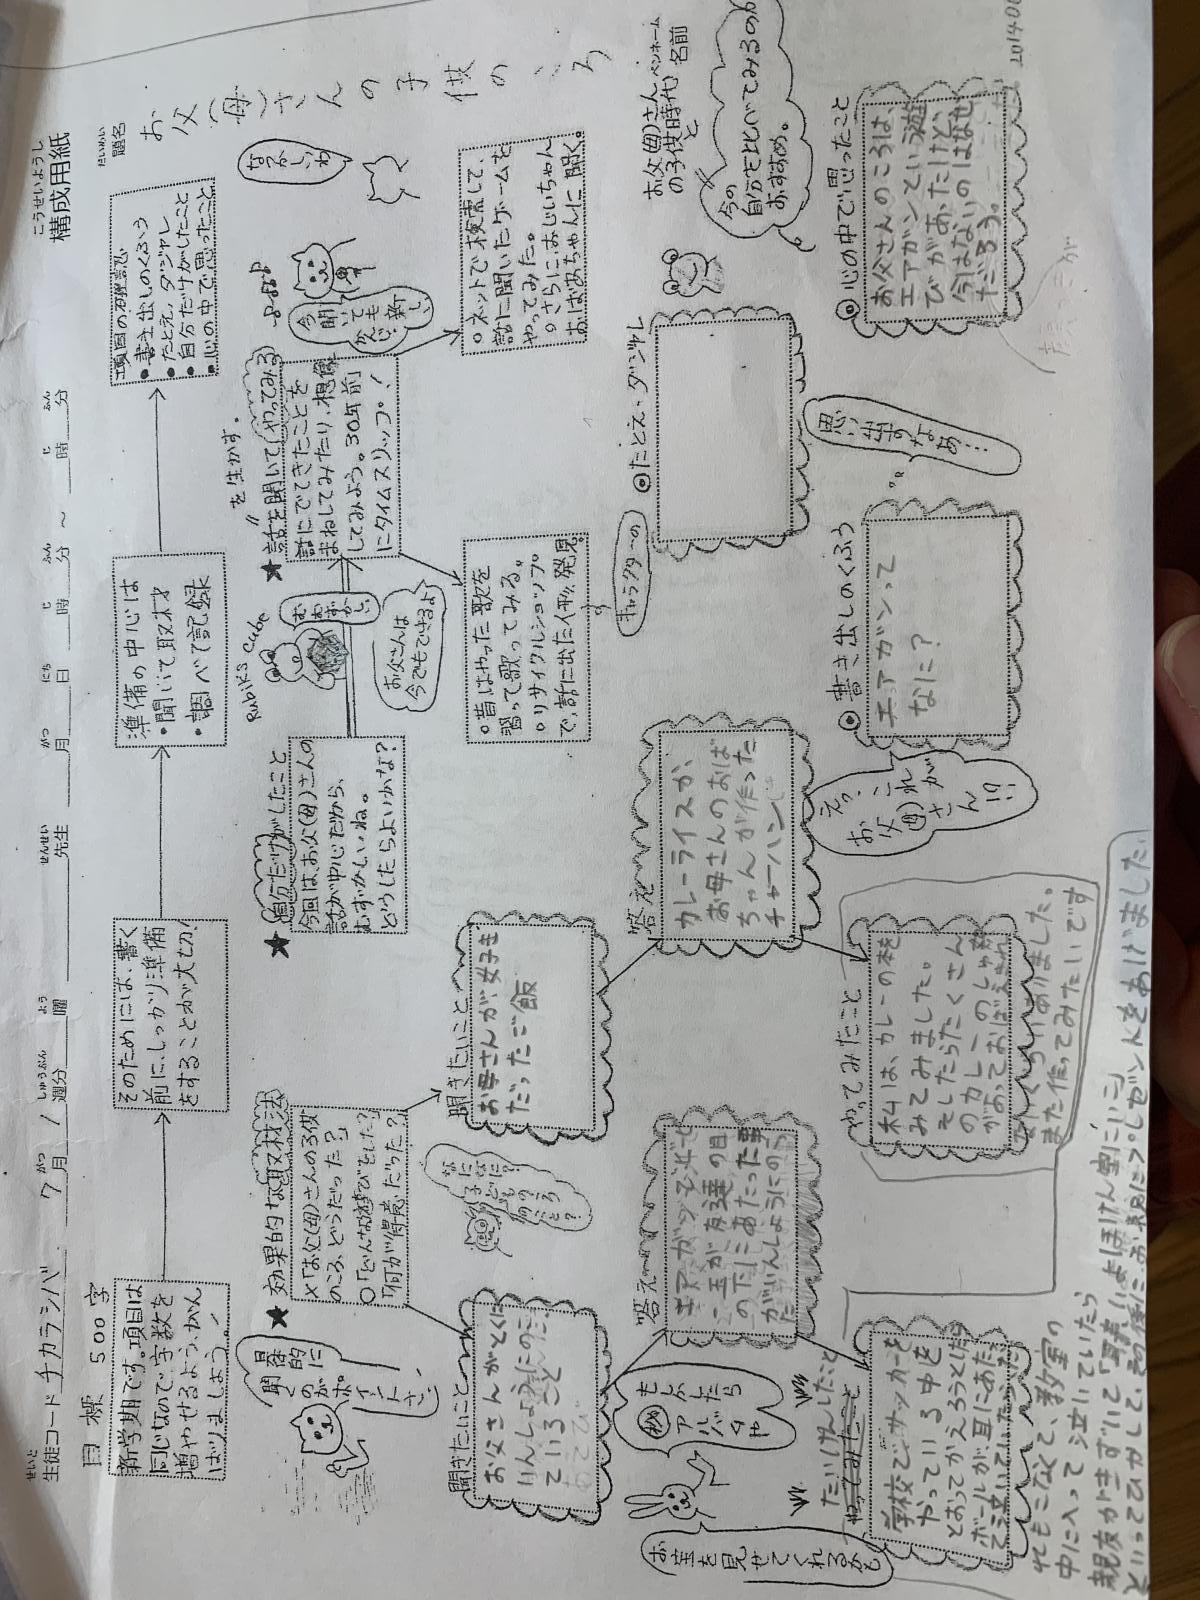 構成用紙
こうせいようし
生徒コード チカラシバ 7月 1週分 曜 先生 月 日 時 分 ～ 時 分
せいと がつ しゅうぶん よう せんせい がつ にち じ ふん じ ふん
目標 500字
題名
だいめい
お父(母)さんの子供のころ
新学期です。項目は
同じなので、字数を
増やせるよう、がん
ばりましょう！
そのためには、書く
前に、しっかり準備
をすることが大切！
準備の中心は
・聞いて取材
・調べて記録
項目の確認
・書き出しのくふう
・たとえ、ダジャレ
・自分だけがしたこと
・心の中で思ったこと
具体的に
聞くのが
ポイント
さ。
★効果的な取材法
×「お父(母)さんの子供
のころ、どうだった？」
○「どんな遊びをした？」
「何が得意だった？」
なになに？
子どもの
ころ
何のこと？
★自分だけがしたこと
今回は、お父(母)さんの
話が中心だから、
むずかしいね。
どうしたらよいかな？
Rubik's Cube
むずかしい
お父さんは
今でもできるよ
を生かす。
★話を聞いて(やってみる)
話にでてきたことを
まねしてみたり、想像
してみよう。30年前
にタイムスリップ！
今聞
いても
かんじ
新しい
なつかしいわ
○昔はやった歌を
習って歌ってみる。
○リサイクルショップ
で、話に出た何かを発見。
○ネットで検索して、
話に聞いたゲームを
やってみた。
○さらに、おじいちゃん
おばあちゃんに聞く。
聞きたいこと
お父さんがとくに
いんしょうにのこっ
ていること
聞きたいこと
お母さんが、女子生
だったご飯
もしかしたら
㊙
アルバムや
お宝を見せてくれるかも
答え
エアガン
玉が友達の目
の下にあたった事
がいんしょうにのこっ
た
答え
カレーライスか、
お母さんのおば
ちゃんが作った
チャーハン
キャラクターの
◎たとえ・ダジャレ
お父(母)さん
の子供時代
と
ペンネーム
名前
今の
自分と比べてみるのが
おすすめ。
たいけんしたこと
やってみたこと
学校でサッカーを
やっている中を
とおってかえろうとしたら
ボールが耳にあたっ
て泣いていたらだ
れもこなくて、教室の
中に入って泣いていたら
親友がきずいて「耳青いよ、ほけん室にいこ」
といってひやして、その後にお礼にプレゼントをあげました。
やってみたこと
私は、カレーの本を
みてみました。
そしたらたくさん
のカレーのしゅ類
があっておぼえきれ
ないくらいありました。
また作ってみたいです
えっ、これが
お父(母)さん!?
◎書き出しのくふう
エアガンって
なに？
思い出すなあ…
◎心の中で思ったこと
お父さんのころは、
エアガンとい遊
びがあったけど、
今はないのはなぜ
だろう。